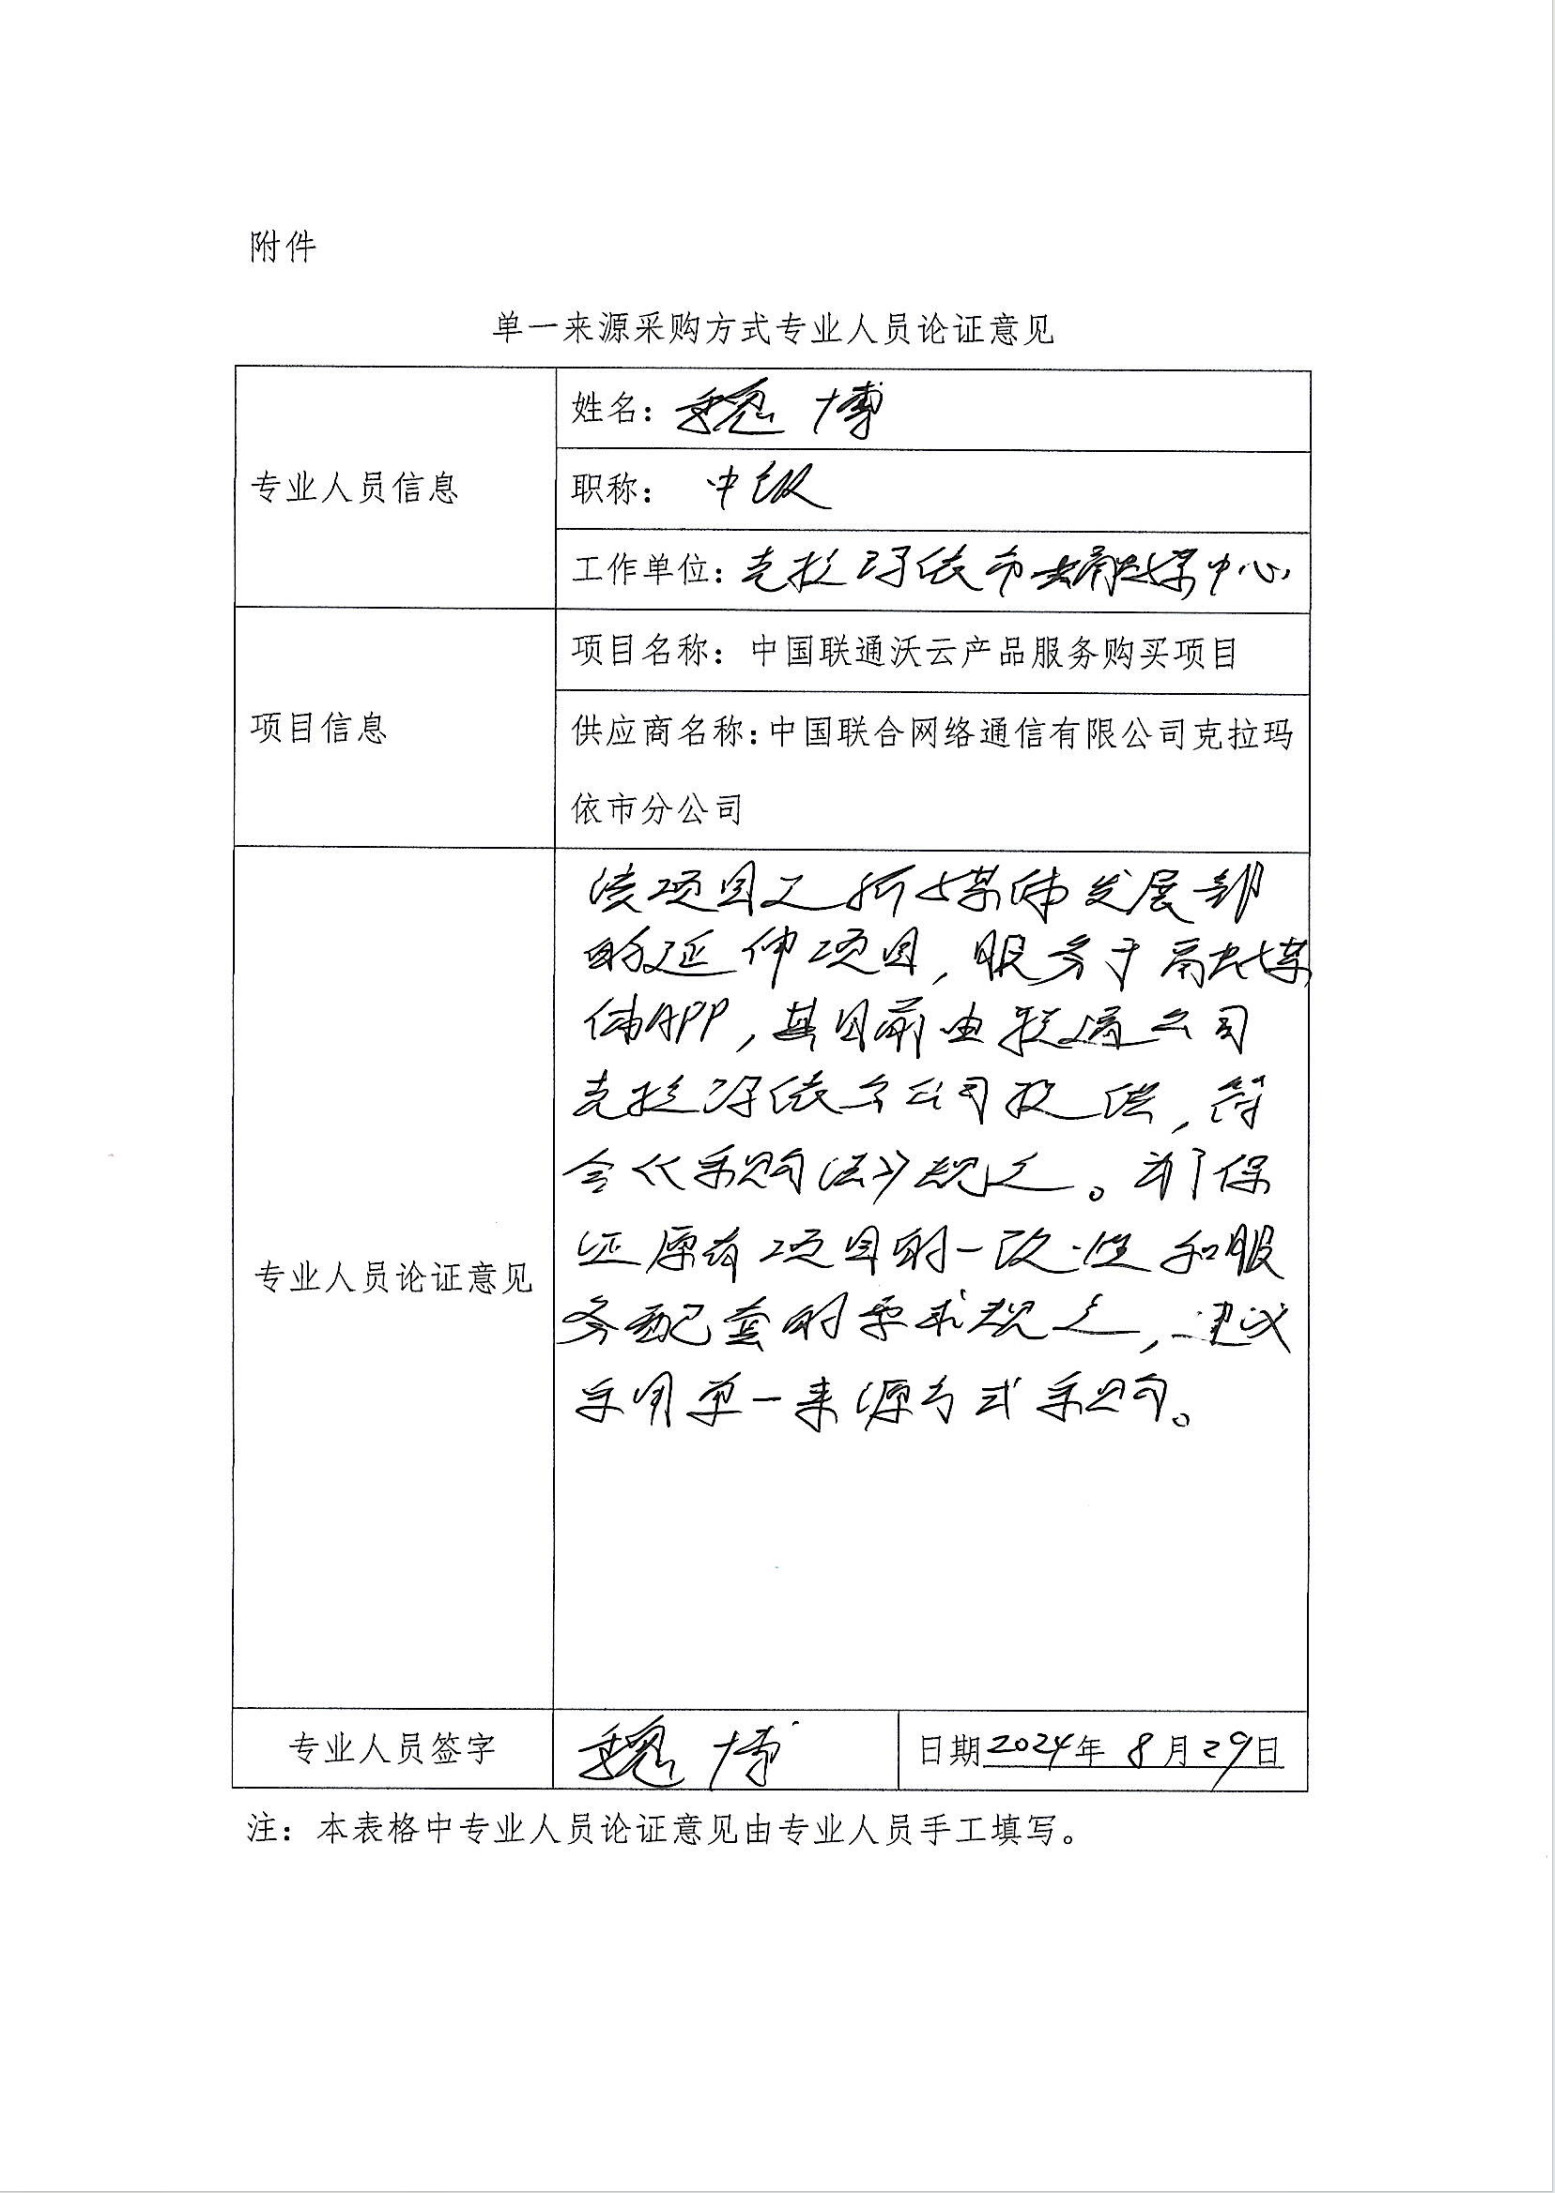 附件
单一来源采购方式专业人员论证意见
专业人员信息
姓名：魏博
职称：中级
工作单位：克拉玛依市融媒中心
项目信息
项目名称：中国联通沃云产品服务购买项目
供应商名称：中国联合网络通信有限公司克拉玛
依市分公司
专业人员论证意见
该项目是新媒体发展部
的延伸项目，服务于融媒
体APP，其目前由联通公司
克拉玛依分公司提供，符
合《采购法》规定。为了保
证原有项目的一致性和服
务配套的要求规定，建议
采用单一来源方式采购。
专业人员签字
魏博
日期2024年8月29日
注：本表格中专业人员论证意见由专业人员手工填写。